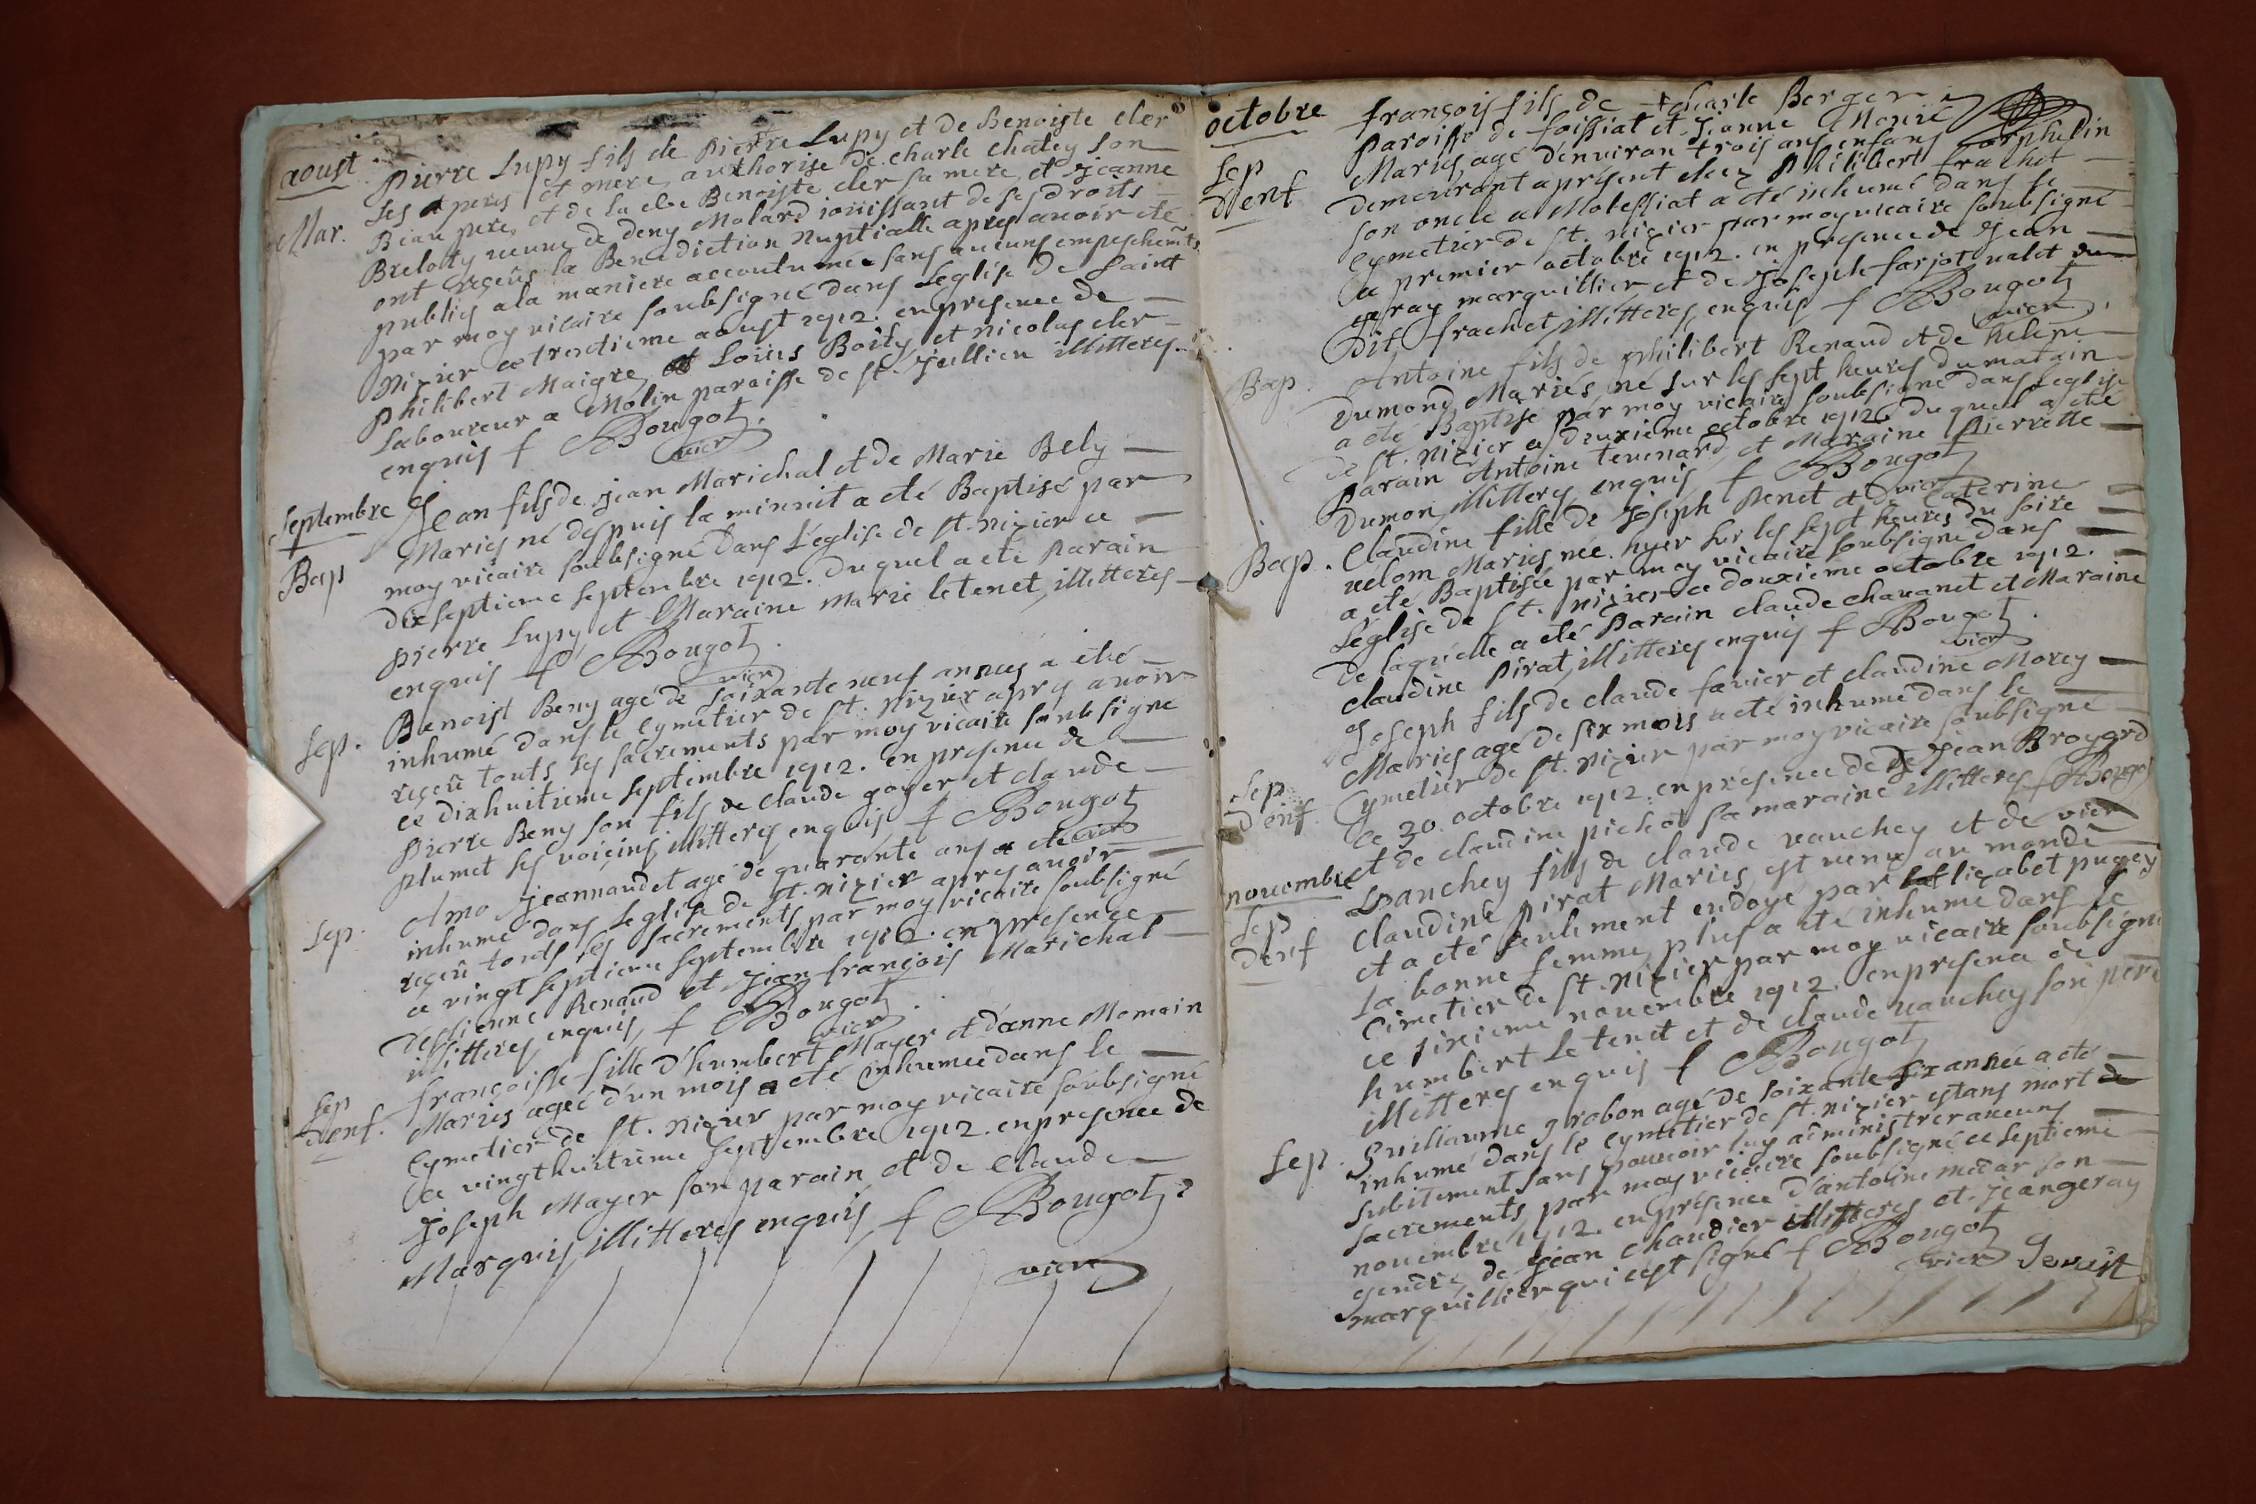 aoust
Mar.
Pierre Lupy fils de Pierre Lupy et de Benoiste cler
ses peres et mere, authorise de charle chatey son
Beau pere, et de la ditte Benoiste cler sa mere, et Jeanne
Breloty veuve de deny Molard joüissant de ses droits
ont reçeüs la Benediction Nuptialle apres avoir eté
publies a la maniere accoutumée sans aucuns empeschemts
par moy vicaire soubsigné dans l'eglise de saint
Nizier ce trentieme aoust 1712. en presence de
Philibert Maigre, et Loüis Boity et nicolas cler
laboureur a Molin paroisse de st. Jullien illitteres
enquis f Bougot
vicr
Septembre
Bap
Jean fils de Jean Marichal et de Marie Bely
Maries né despuis la minuit a eté Baptisé par
moy vicaire soubsigné dans l'église de st. nizier ce
dixseptieme septembre 1712. duquel a eté Parain
pierre Lupy et Maraine Marie letenet, illitteres
enquis f Bougot
vicr
Sep.
Benoist Beny agé de soixante neuf annees a eté
inhumé dans le cymetier de st. nizier apres avoir
reçeü touts ses sacrements par moy vicaire soubsigné
ce dixhuitieme septembre 1712. en presence de
pierre Beny son fils de claude goyer et claude
plumet ses voiçins illitteres enquis f Bougot
vicr
Sep.
Amo Jeannaudet agé de quarante ans a eté
inhumé dans l'eglise de st. nizier apres avoir
reçeü touts ses sacrements par moy vicaire soubsigné
ce vingt septieme septembre 1712. en presence
d'estienne Renaud et Jean françois Marichal
illitteres enquis f Bougot
vicr
Sep
d'enf.
françoisse fille d'humbert Mayer et d'anne Momain
Maries ageé d'un mois a eté inhumée dans le
cymetier de st. nizier par moy vicaire soubsigné
ce vingthuitieme septembre 1712. en presence de
Joseph Mayer son parain et de claude
Marquis illitteres enquis f Bougot
vicr
octobre
Sep
d'enf
françois fils de charle Berger
paroisse de foissiat et Jeanne Monié
Maries, agé d'environ trois ans enfans orphelin
demeurant a présent chez Philibert frachet
son oncle a Molessiat a eté inhumé dans le
cymetier de st. nizier par moy vicaire soubsigné
ce premier octobre 1712. en presence de Jean
geray marquillier et de Joseph farjot valet du
dit frachet, illitteres enquis f Bougot
vicr
Bap.
Antoine fils de philibert Renaud et de heleine
dumond Mariés né sur les sept heures du matain
a eté Baptisé par moy vicaire soubsigné dans l'eglise
de st. nizier ce deuxieme octobre 1712. duquel a eté
Parain Antoine tevenard, et Maraine Pierrette
Dumon, illitteres enquis f Bougot
vicr
Bap.
Claudine fille de Joseph Penet et de Caterine
velom Maries née hyer sur les sept heures du soire
a eté Baptisée par moy vicaire soubsigné dans
l'église de st. nizier ce douxieme octobre 1712.
de laquelle a eté Parain claude chavanet et Maraine
claudine Pirat, illitteres enquis f Bougot
vicr
Sep
d'enf.
Joseph fils de claude favier et claudine Morey
Maries agé de six mois a eté inhumé dans le
cymetier de st. nizier par moy vicaire soubsigné
ce 30. octobre 1712. en présence de Jean Broyard
et de claudine pichot sa maraine illitteres f Bougot
vicr
novembre
Sep
d'enf
vauchey fils de claude vauchey et de
claudine pirat Maries est venu au monde
et a eté seulement endoyé par elizabet pugey
la bonne femme, plus a eté inhumé dans le
cimetier de st. nizier par moy vicaire soubsigné
ce sixieme novembre 1712. en presence de
humbert letenet et de claude vauchey son pere
illitteres enquis f Bougot
Sep.
Guillaume grobon agé de soixante six année a eté
inhumé dans le cymetier de st. nizier estans mort
subitement sans pouvoir luy administrer aucuns
sacrements par moy vicaire soubsigné ce septieme
novembre 1712. en présence d'antoine micar son
gendre, de Jean chaudier illitteres et Jean geray
marquillier qui c'est signé f Bougot
vicr